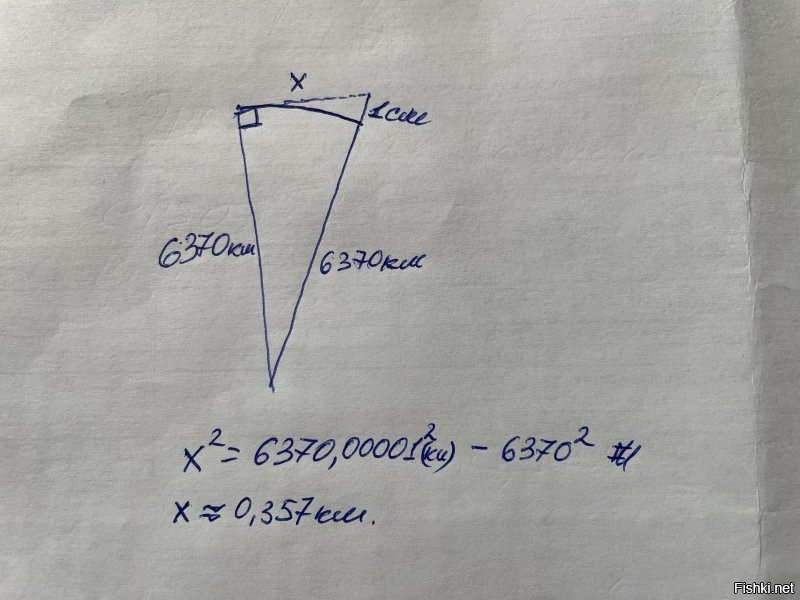 x
1 см
6370км
6370км
x² = 6370,00001²(км) - 6370²
x ≈ 0,357км.
Fishki.net